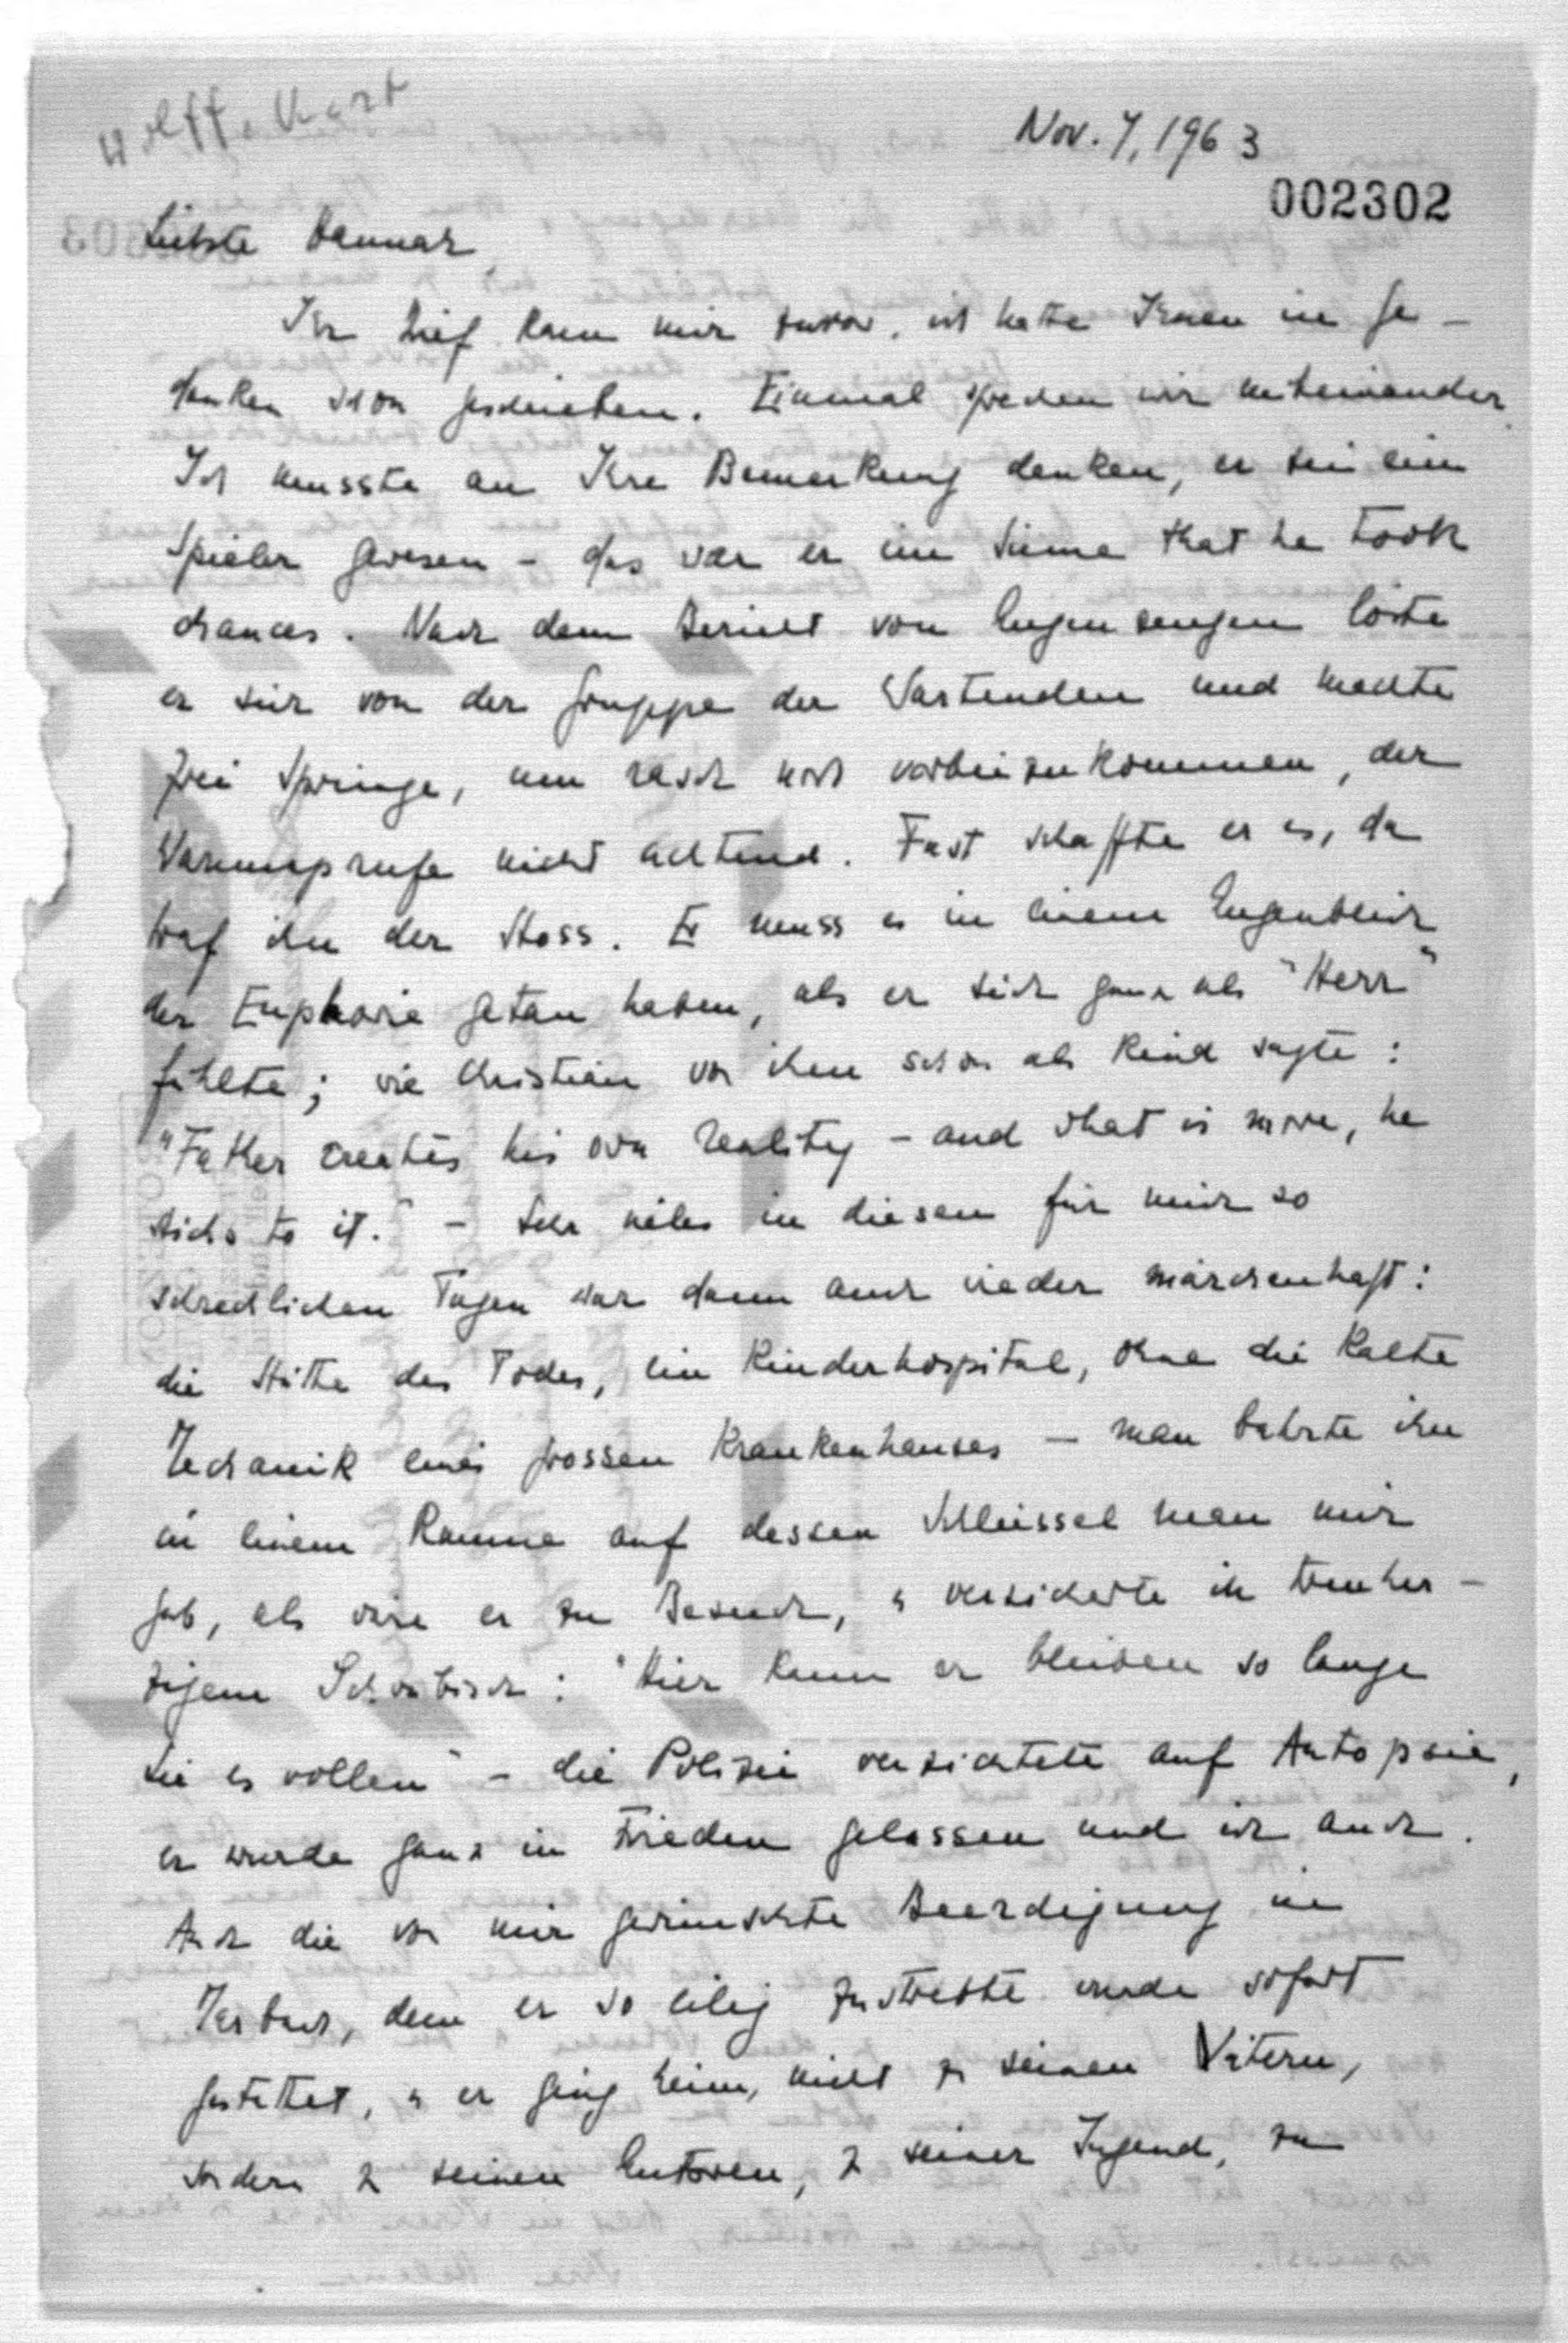 Wolff, Kurt
Nov. 7, 1963
002302
Liebste Hannah,
Ihr Brief kam mir zuvor, ich hatte Ihnen in Ge-
danken schon geschrieben. Einmal sprechen wir miteinander.
Ich musste an Ihre Bemerkung denken, er sei ein
Spieler gewesen - das war er im Sinne that he took
chances. Nach dem Bericht von Augenzeugen löste
er sich von der Gruppe der Wartenden und machte
zwei Sprünge, um rasch noch vorbeizukommen, der
Warnungsrufe nicht achtend. Fast schaffte er es, da
traf ihn der Stoss. Er muss es in einem Augenblick
der Euphorie getan haben, als er sich ganz als "Herr"
fühlte; wie Christian von ihm schon als Kind sagte:
"Father creates his own reality - and what is more, he
sticks to it." - Sehr vieles in diesen für mich so
schrecklichen Tagen war dann auch wieder märchenhaft:
die Stätte des Todes, ein Kinderhospital, ohne die kalte
Mechanik eines grossen Krankenhauses - man bahrte ihn
in einem Raume auf dessen Schlüssel man mir
gab, als wäre er zu Besuch, u versicherte in treuher-
zigem Schwäbisch: "Hier kann er bleiben so lange
Sie es wollen" - die Polizei verzichtete auf Autopsie,
er wurde ganz in Frieden gelassen und ich auch.
Auch die von mir gewünschte Beerdigung in
Marbach, dem er so eilig zustrebte wurde sofort
gestattet, u er ging heim, nicht zu seinen Vätern,
sondern zu seinen Autoren, zu seiner Jugend, zu